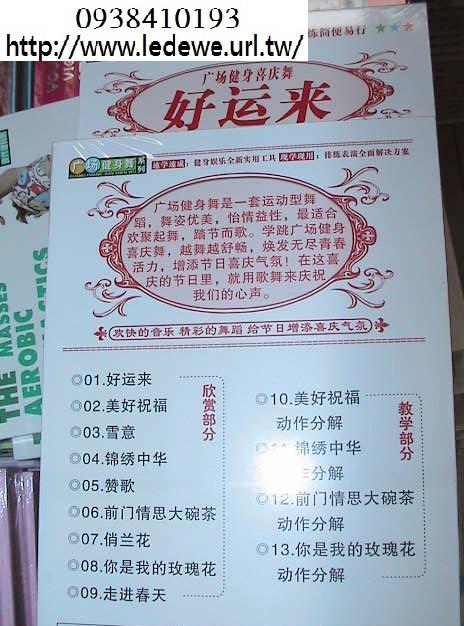 0938410193
http://www.ledewe.url.tw/
练简便易行
广场健身喜庆舞
好运来
广场健身舞系列
速学速成：健身娱乐全新实用工具 现学现用：排练表演全面解决方案
广场健身舞是一套运动型舞
蹈，舞姿优美，怡情益性，最适合
欢聚起舞，踏节而歌。学跳广场健身
喜庆舞，越舞越舒畅，焕发无尽青春
活力，增添节日喜庆气氛！在这喜
庆的节日里，就用歌舞来庆祝
我们的心声。
欢快的音乐 精彩的舞蹈 给节日增添喜庆气氛
◎01.好运来
◎02.美好祝福
◎03.雪意
◎04.锦绣中华
◎05.赞歌
◎06.前门情思大碗茶
◎07.俏兰花
◎08.你是我的玫瑰花
◎09.走进春天
欣赏部分
◎10.美好祝福
动作分解
◎11.锦绣中华
动作分解
◎12.前门情思大碗茶
动作分解
◎13.你是我的玫瑰花
动作分解
教学部分
THE MASSES
AEROBIC